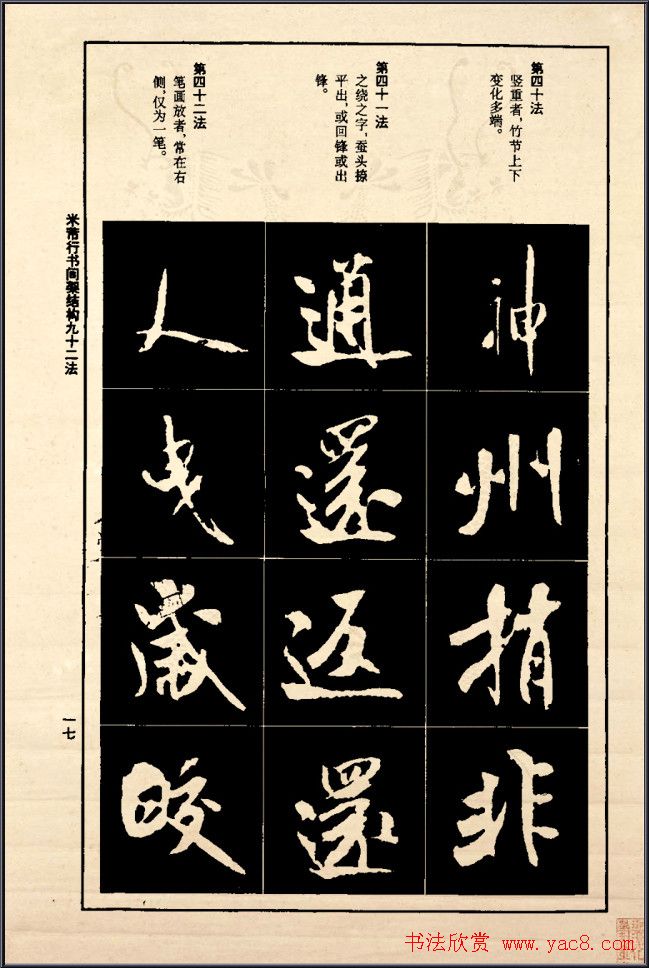 第四十法
竖重者，竹节上下
变化多端。
第四十一法
之绕之字，蚕头撩
平出，或回锋或出
锋。
第四十二法
笔画放者，常在右
侧，仅为一笔。
神
州
捎
非
通
还
返
還
人
曳
岁
晈
米芾行书间架结构九十二法
一七
书法欣赏 www.yac8.com